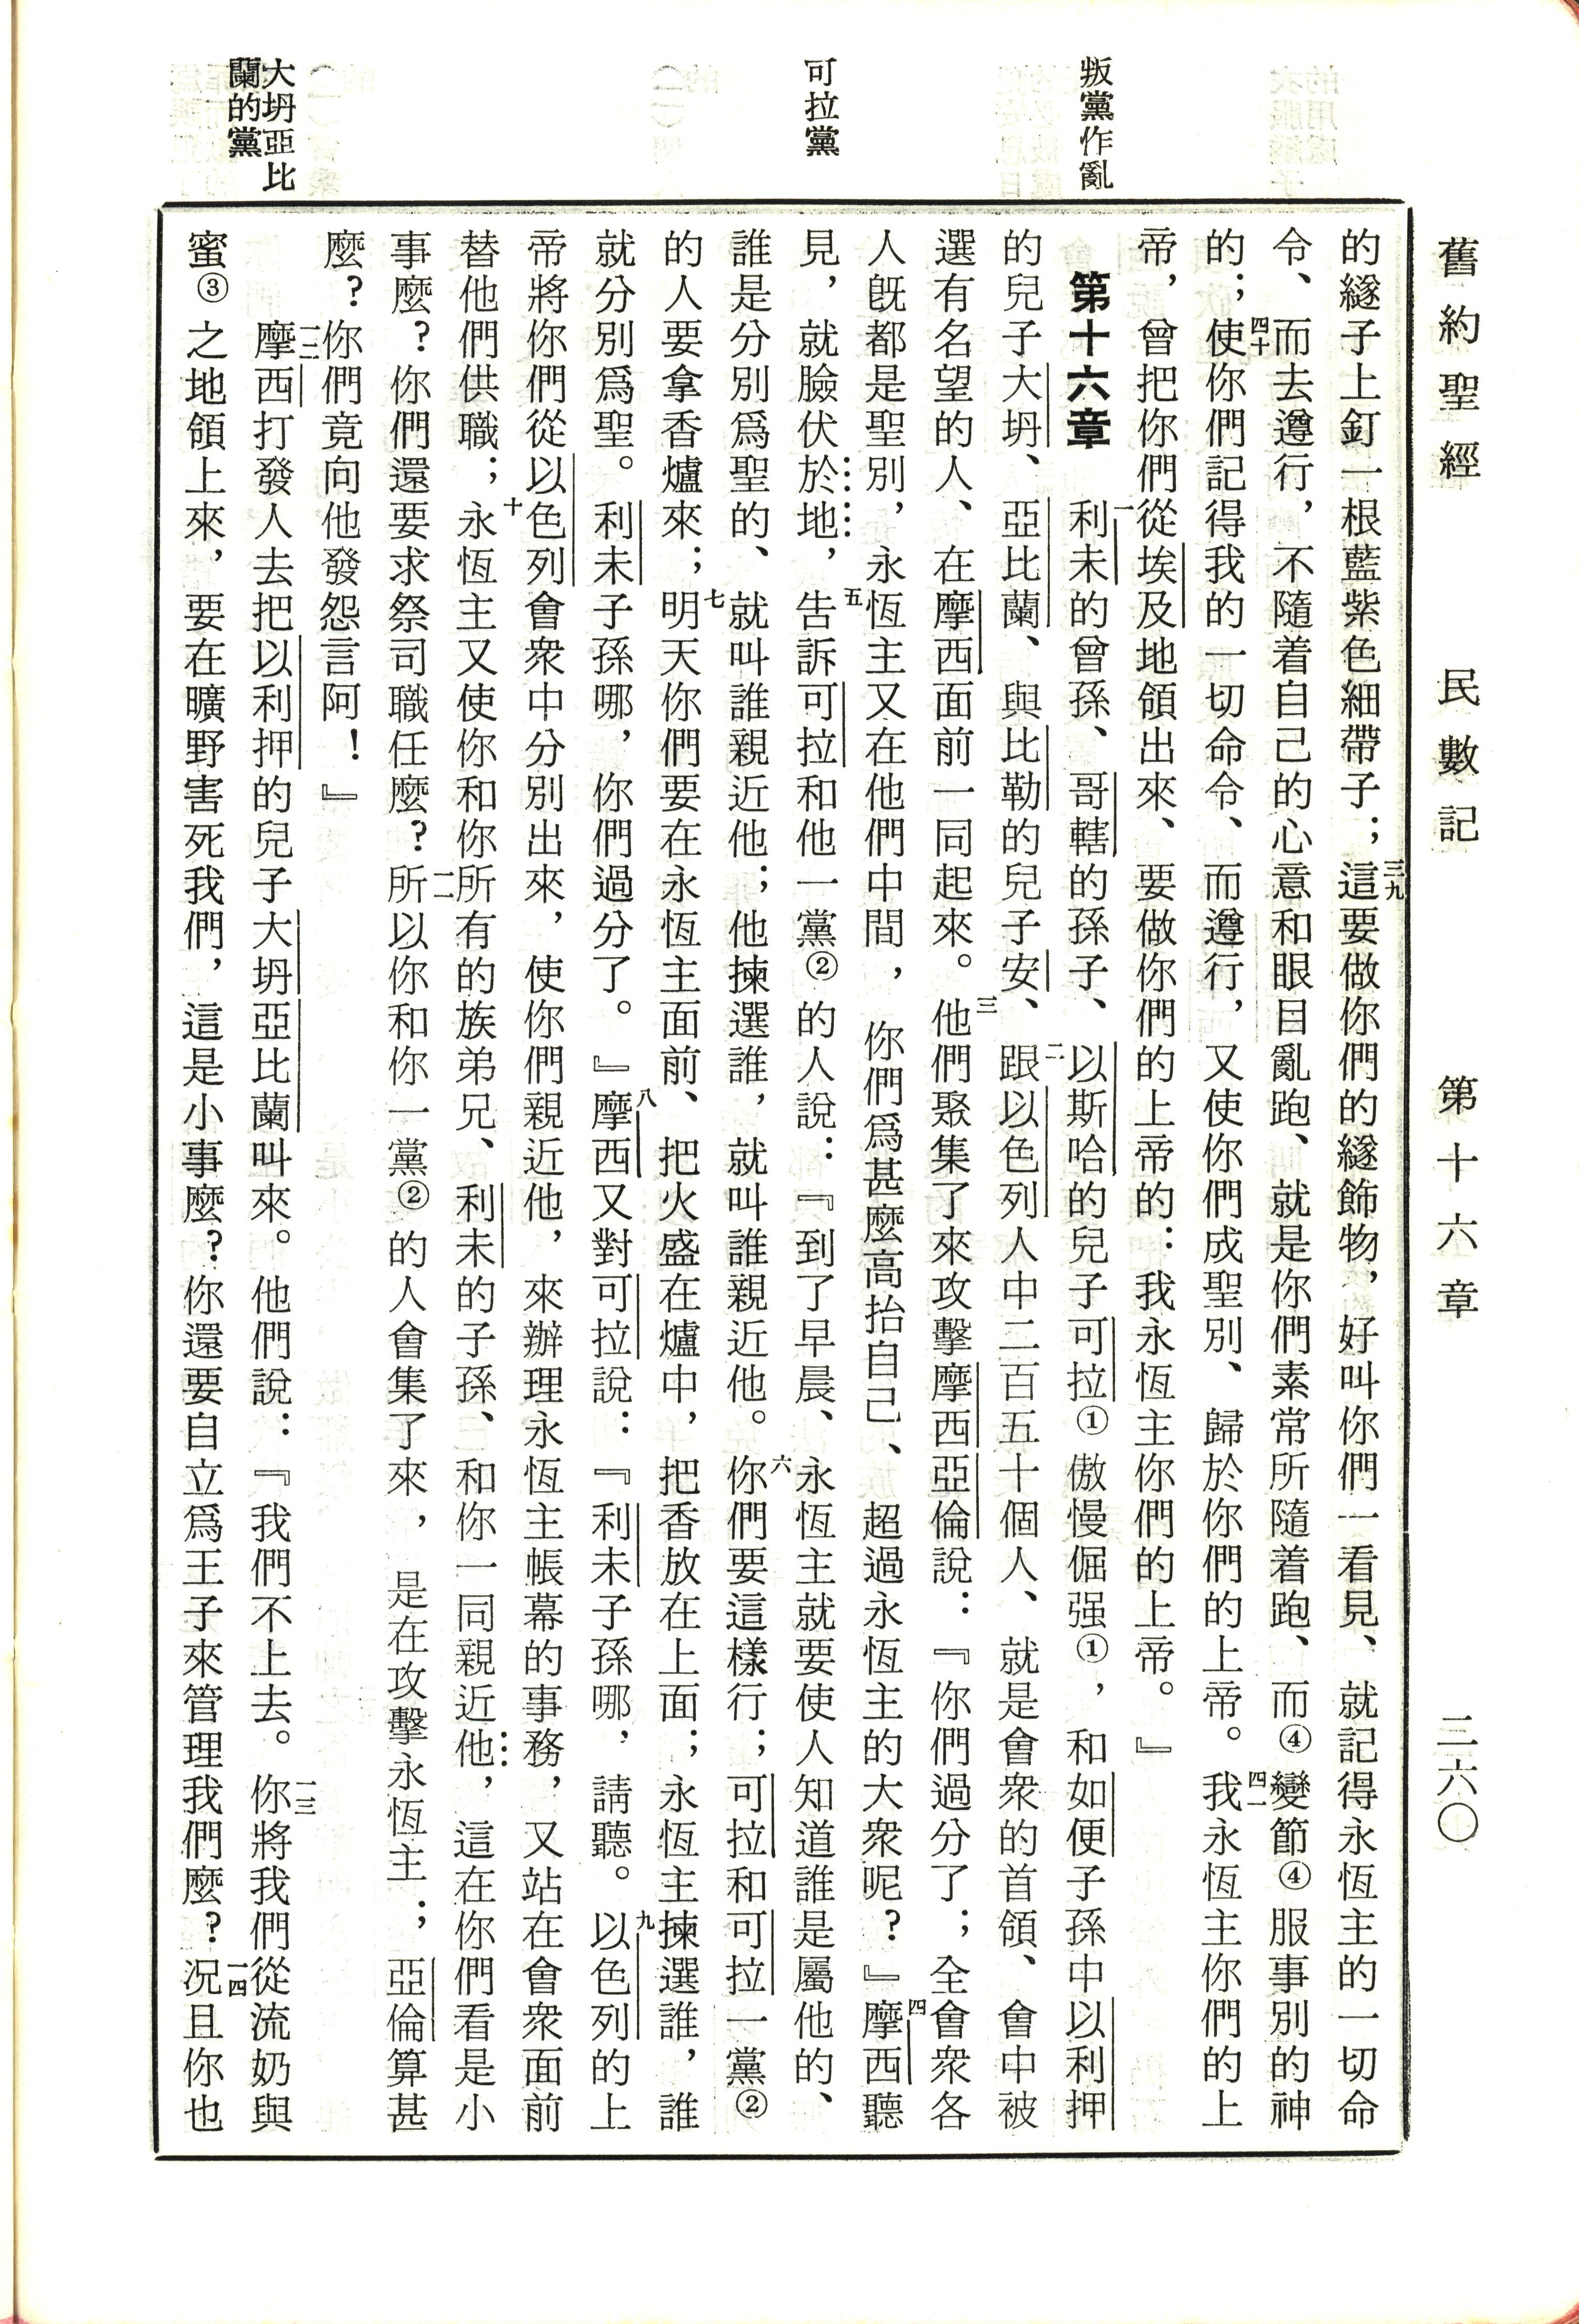 舊約聖經　民數記　第十六章　三六〇
叛黨作亂
可拉黨
大坍亞比
蘭的黨
的繸子上釘一根藍紫色細帶子；三九這要做你們的繸飾物，好叫你們一看見、就記得永恆主的一切命
令、而去遵行，不隨着自己的心意和眼目亂跑、就是你們素常所隨着跑、而④變節④服事別的神
的；四十使你們記得我的一切命令、而遵行，又使你們成聖別、歸於你們的上帝。四一我永恆主你們的上
帝，曾把你們從埃及地領出來、要做你們的上帝的：我永恆主你們的上帝。』
第十六章　一利未的曾孫、哥轄的孫子、二以斯哈的兒子可拉①傲慢倔强①，和如便子孫中以利押
的兒子大坍、亞比蘭、與比勒的兒子安、二跟以色列人中二百五十個人、就是會衆的首領、會中被
選有名望的人、在摩西面前一同起來。三他們聚集了來攻擊摩西亞倫說：『你們過分了；全會衆各
人旣都是聖別，永恆主又在他們中間，你們爲甚麼高抬自己、超過永恆主的大衆呢？』四摩西聽
見，就臉伏於地，五吿訴可拉和他一黨②的人說：『到了早晨、永恆主就要使人知道誰是屬他的、
誰是分別爲聖的、就叫誰親近他；他揀選誰，就叫誰親近他。六你們要這樣行；可拉和可拉一黨②
的人要拿香爐來；七明天你們要在永恆主面前、把火盛在爐中，把香放在上面；永恆主揀選誰，誰
就分別爲聖。利未子孫哪，你們過分了。』八摩西又對可拉說：『利未子孫哪，請聽。九以色列的上
帝將你們從以色列會衆中分別出來，使你們親近他，來辦理永恆主帳幕的事務，又站在會衆面前
替他們供職；十永恆主又使你和你所有的族弟兄、利未的子孫、和你一同親近他，這在你們看是小
事麼？你們還要求祭司職任麼？一一所以你和你一黨②的人會集了來，是在攻擊永恆主；亞倫算甚
麼？你們竟向他發怨言阿！』
一二摩西打發人去把以利押的兒子大坍亞比蘭叫來。他們說：『我們不上去。一三你將我們從流奶與
蜜③之地領上來，要在曠野害死我們，這是小事麼？你還要自立爲王子來管理我們麼？一四况且你也